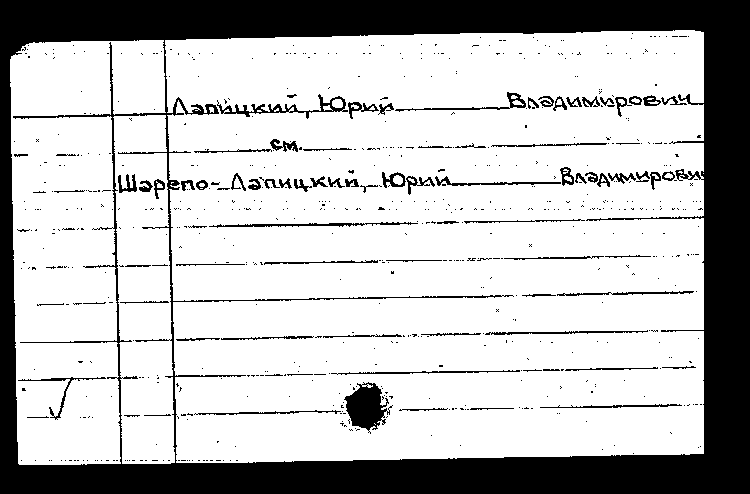 Лапицкий, Юрий Владимирович
см.
Шарепо-Лапицкий, Юрий Владимирови